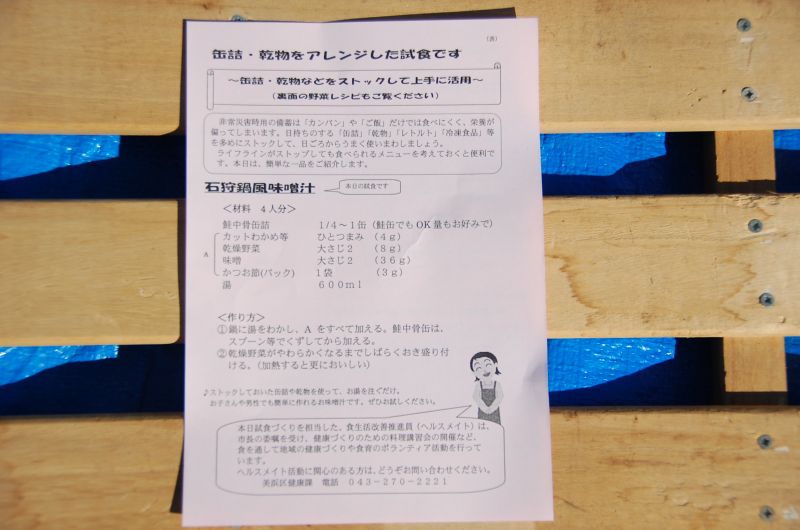 （表）
缶詰・乾物をアレンジした試食です
～缶詰・乾物などをストックして上手に活用～
（裏面の野菜レシピもご覧ください）
非常災害時用の備蓄は「カンパン」や「ご飯」だけでは食べにくく、栄養が
偏ってしまいます。日持ちのする「缶詰」「乾物」「レトルト」「冷凍食品」等
を多めにストックして、日ごろからうまく使いまわしましょう。
ライフラインがストップしても食べられるメニューを考えておくと便利で
す。本日は、簡単な一品をご紹介します。
石狩鍋風味噌汁 本日の試食です
＜材料　４人分＞
鮭中骨缶詰　１/４～１缶（鮭缶でも OK 量もお好みで）
カットわかめ等　ひとつまみ　（４ｇ）
乾燥野菜　大さじ２　（８ｇ）
A
味噌　大さじ２　（３６ｇ）
かつお節(パック)　１袋　（３ｇ）
湯　６００ｍｌ
＜作り方＞
①鍋に湯をわかし、A をすべて加える。鮭中骨缶は、
スプーン等でくずしてから加える。
②乾燥野菜がやわらかくなるまでしばらくおき盛り付
ける。（加熱すると更においしい）
♪ストックしておいた缶詰や乾物を使って、お湯を注ぐだけ。
お子さんや男性でも簡単に作れるお味噌汁です。ぜひお試しください。
本日試食づくりを担当した、食生活改善推進員（ヘルスメイト）は、
市長の委嘱を受け、健康づくりのための料理講習会の開催など、
食を通して地域の健康づくりや食育のボランティア活動を行って
います。
ヘルスメイト活動に関心のある方は、どうぞお問い合わせください。
美浜区健康課　電話　０４３－２７０－２２２１